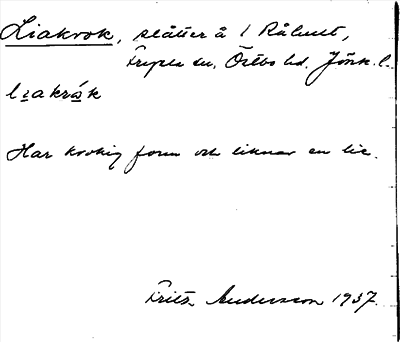 Liakrok, slåtter å 1 Råhult,
Fryele sn. Östbo hd. Jönk. l.
liakråk
Har krokig form och liknar en lie.
Frits Andersson 1937.